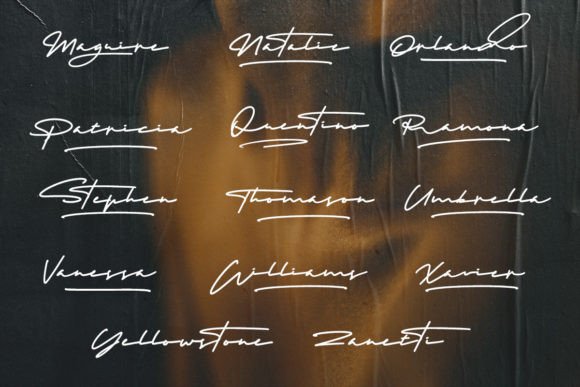 Maguire Natalie Orlando
Patricia Quentino Ramona
Stephen Thomason Umbrella
Vanessa Williams Xavier
Yellowstone Zanetti